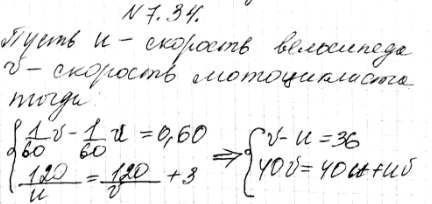 N 7.34.
Пусть u - скорость велосипеда
v - скорость мотоциклиста
тогда:
{ 1/60 v - 1/60 u = 0,60 ⇒ { v - u = 36
{ 120/u = 120/v + 3 { 40v = 40u + uv